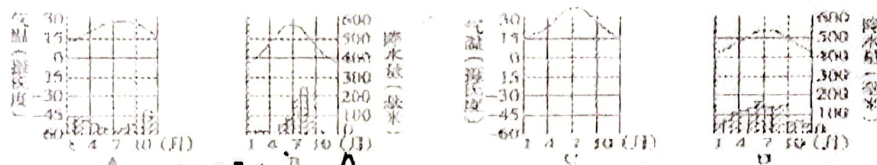 30 15 0 -15 -30 -45 -60
气温(摄氏度)
1 4 7 10 (月)
A
600 500 400 300 200 100 0
降水量(毫米)
1 4 7 10 (月)
B
30 15 0 -15 -30 -45 -60
气温(摄氏度)
1 4 7 10 (月)
C
600 500 400 300 200 100 0
降水量(毫米)
1 4 7 10 (月)
D